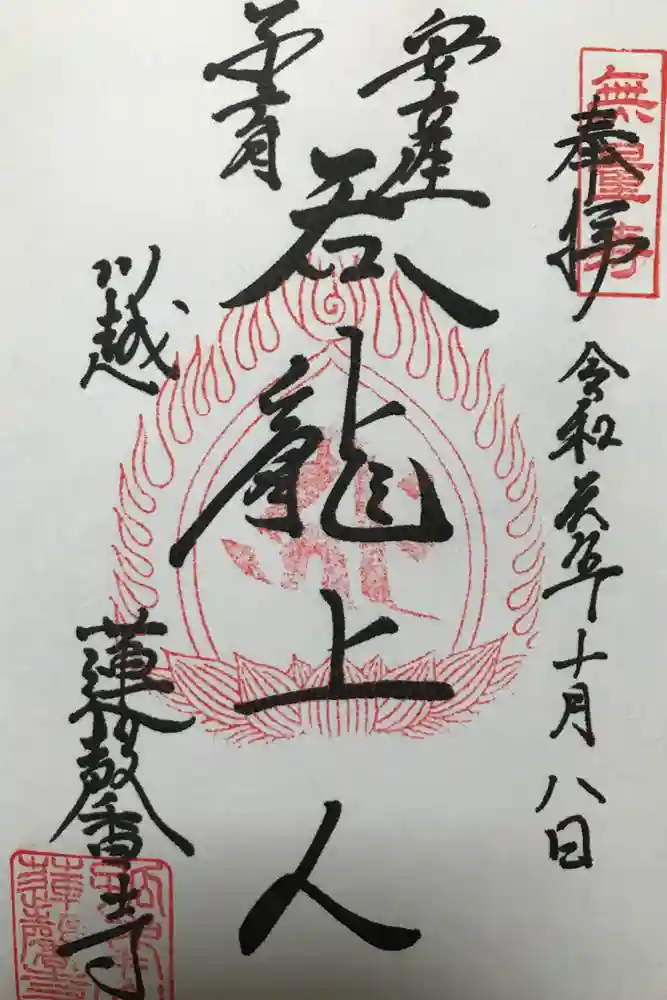 無量
奉拝 令和元年十月八日
安産
子育
呑龍上人
川越
蓮馨寺